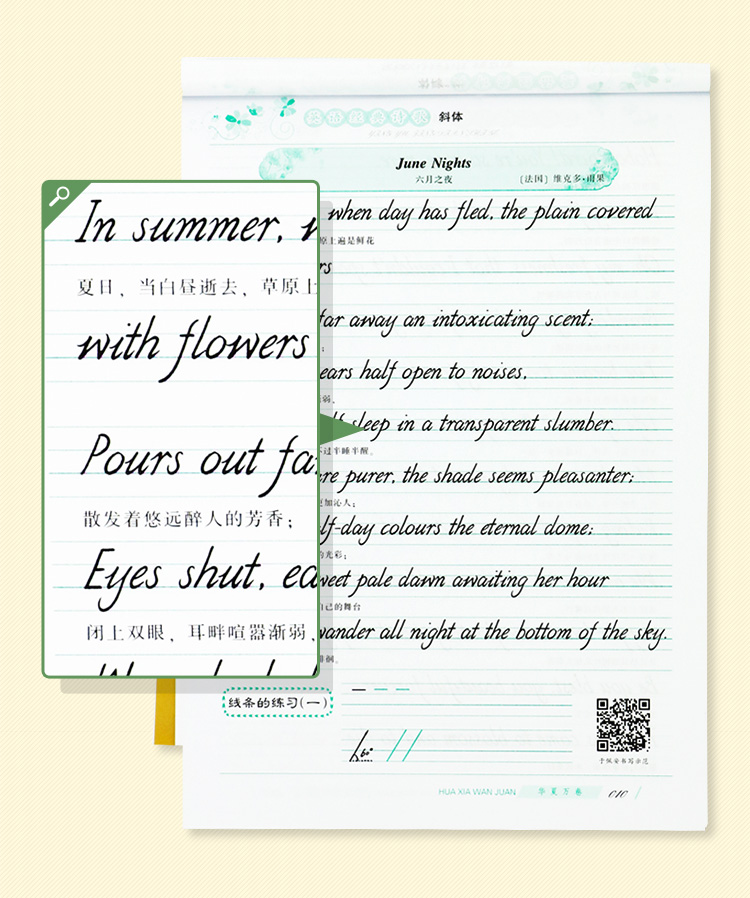 斜体
June Nights
六月之夜
[法国] 维克多·雨果
In summer, w
夏日，当白昼逝去，草原上
with flowers
Pours out fa
散发着悠远醉人的芳香；
Eyes shut, ea
闭上双眼，耳畔喧嚣渐弱，
when day has fled, the plain covered
原上遍是鲜花
rs
far away an intoxicating scent;
ears half open to noises,
弱，
lf sleep in a transparent slumber.
不过半睡半醒。
re purer, the shade seems pleasanter;
更加沁人；
lf-day colours the eternal dome;
的光彩；
weet pale dawn awaiting her hour
自己的舞台
wander all night at the bottom of the sky.
徘徊。
线条的练习(一)
60°
于佩安书写示范
HUA XIA WAN JUAN 华夏万卷 010